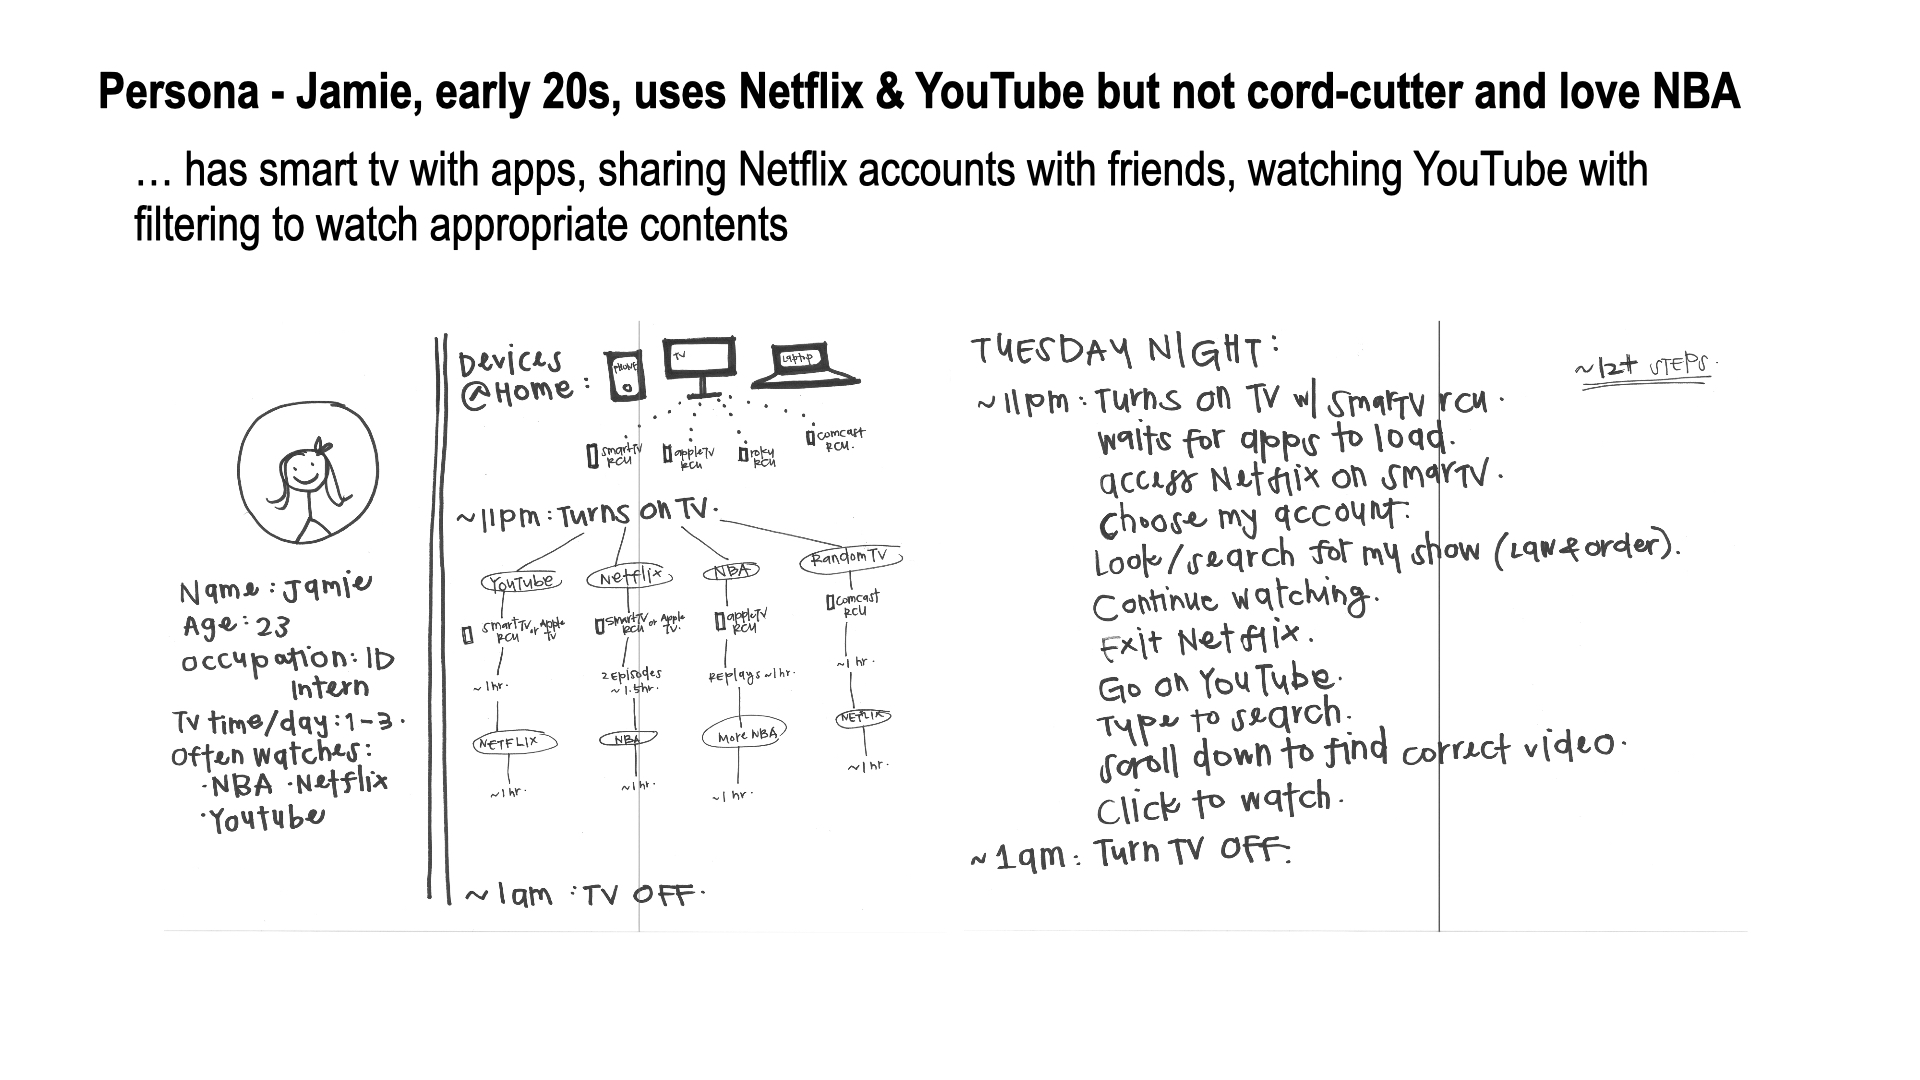 Persona - Jamie, early 20s, uses Netflix & YouTube but not cord-cutter and love NBA
… has smart tv with apps, sharing Netflix accounts with friends, watching YouTube with
filtering to watch appropriate contents
Name: Jamie
Age: 23
Occupation: ID
Intern
TV time/day: 1-3.
Often watches:
·NBA ·Netflix
·Youtube
Devices
@Home:
PHONE
TV
Laptop
smartTV
RCU
appleTV
RCU
roku
RCU
comcast
RCU.
~11pm: Turns on TV.
YouTube
Netflix
NBA
Random TV
smartTV or Apple
RCU TV
smartTV or Apple
RCU TV.
appleTV
RCU
comcast
RCU
~1hr.
2 Episodes
~1.5hr.
Replays ~1hr.
~1 hr.
NETFLIX
NBA
More NBA
NETFLIX
~1 hr.
~1 hr.
~1 hr.
~1 hr.
~1am : TV OFF.
TUESDAY NIGHT:
~12+ STEPS.
~11pm: Turns on TV w/ smarTV rcu.
waits for apps to load.
access Netflix on smarTV.
choose my account.
Look/search for my show (Law & order).
Continue watching.
Exit Netflix.
Go on YouTube.
Type to search.
Scroll down to find correct video.
Click to watch.
~1am: Turn TV OFF.